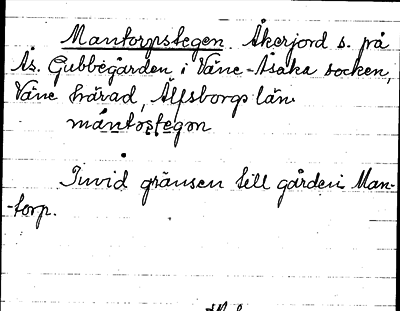 Mantorpstegen. Åkerjord s. på
Ås. Gubbegården i Väne-Åsaka socken,
Väne härad, Älfsborgs län.
mántostegɷn
Invid gränsen till gården Man-
-torp.